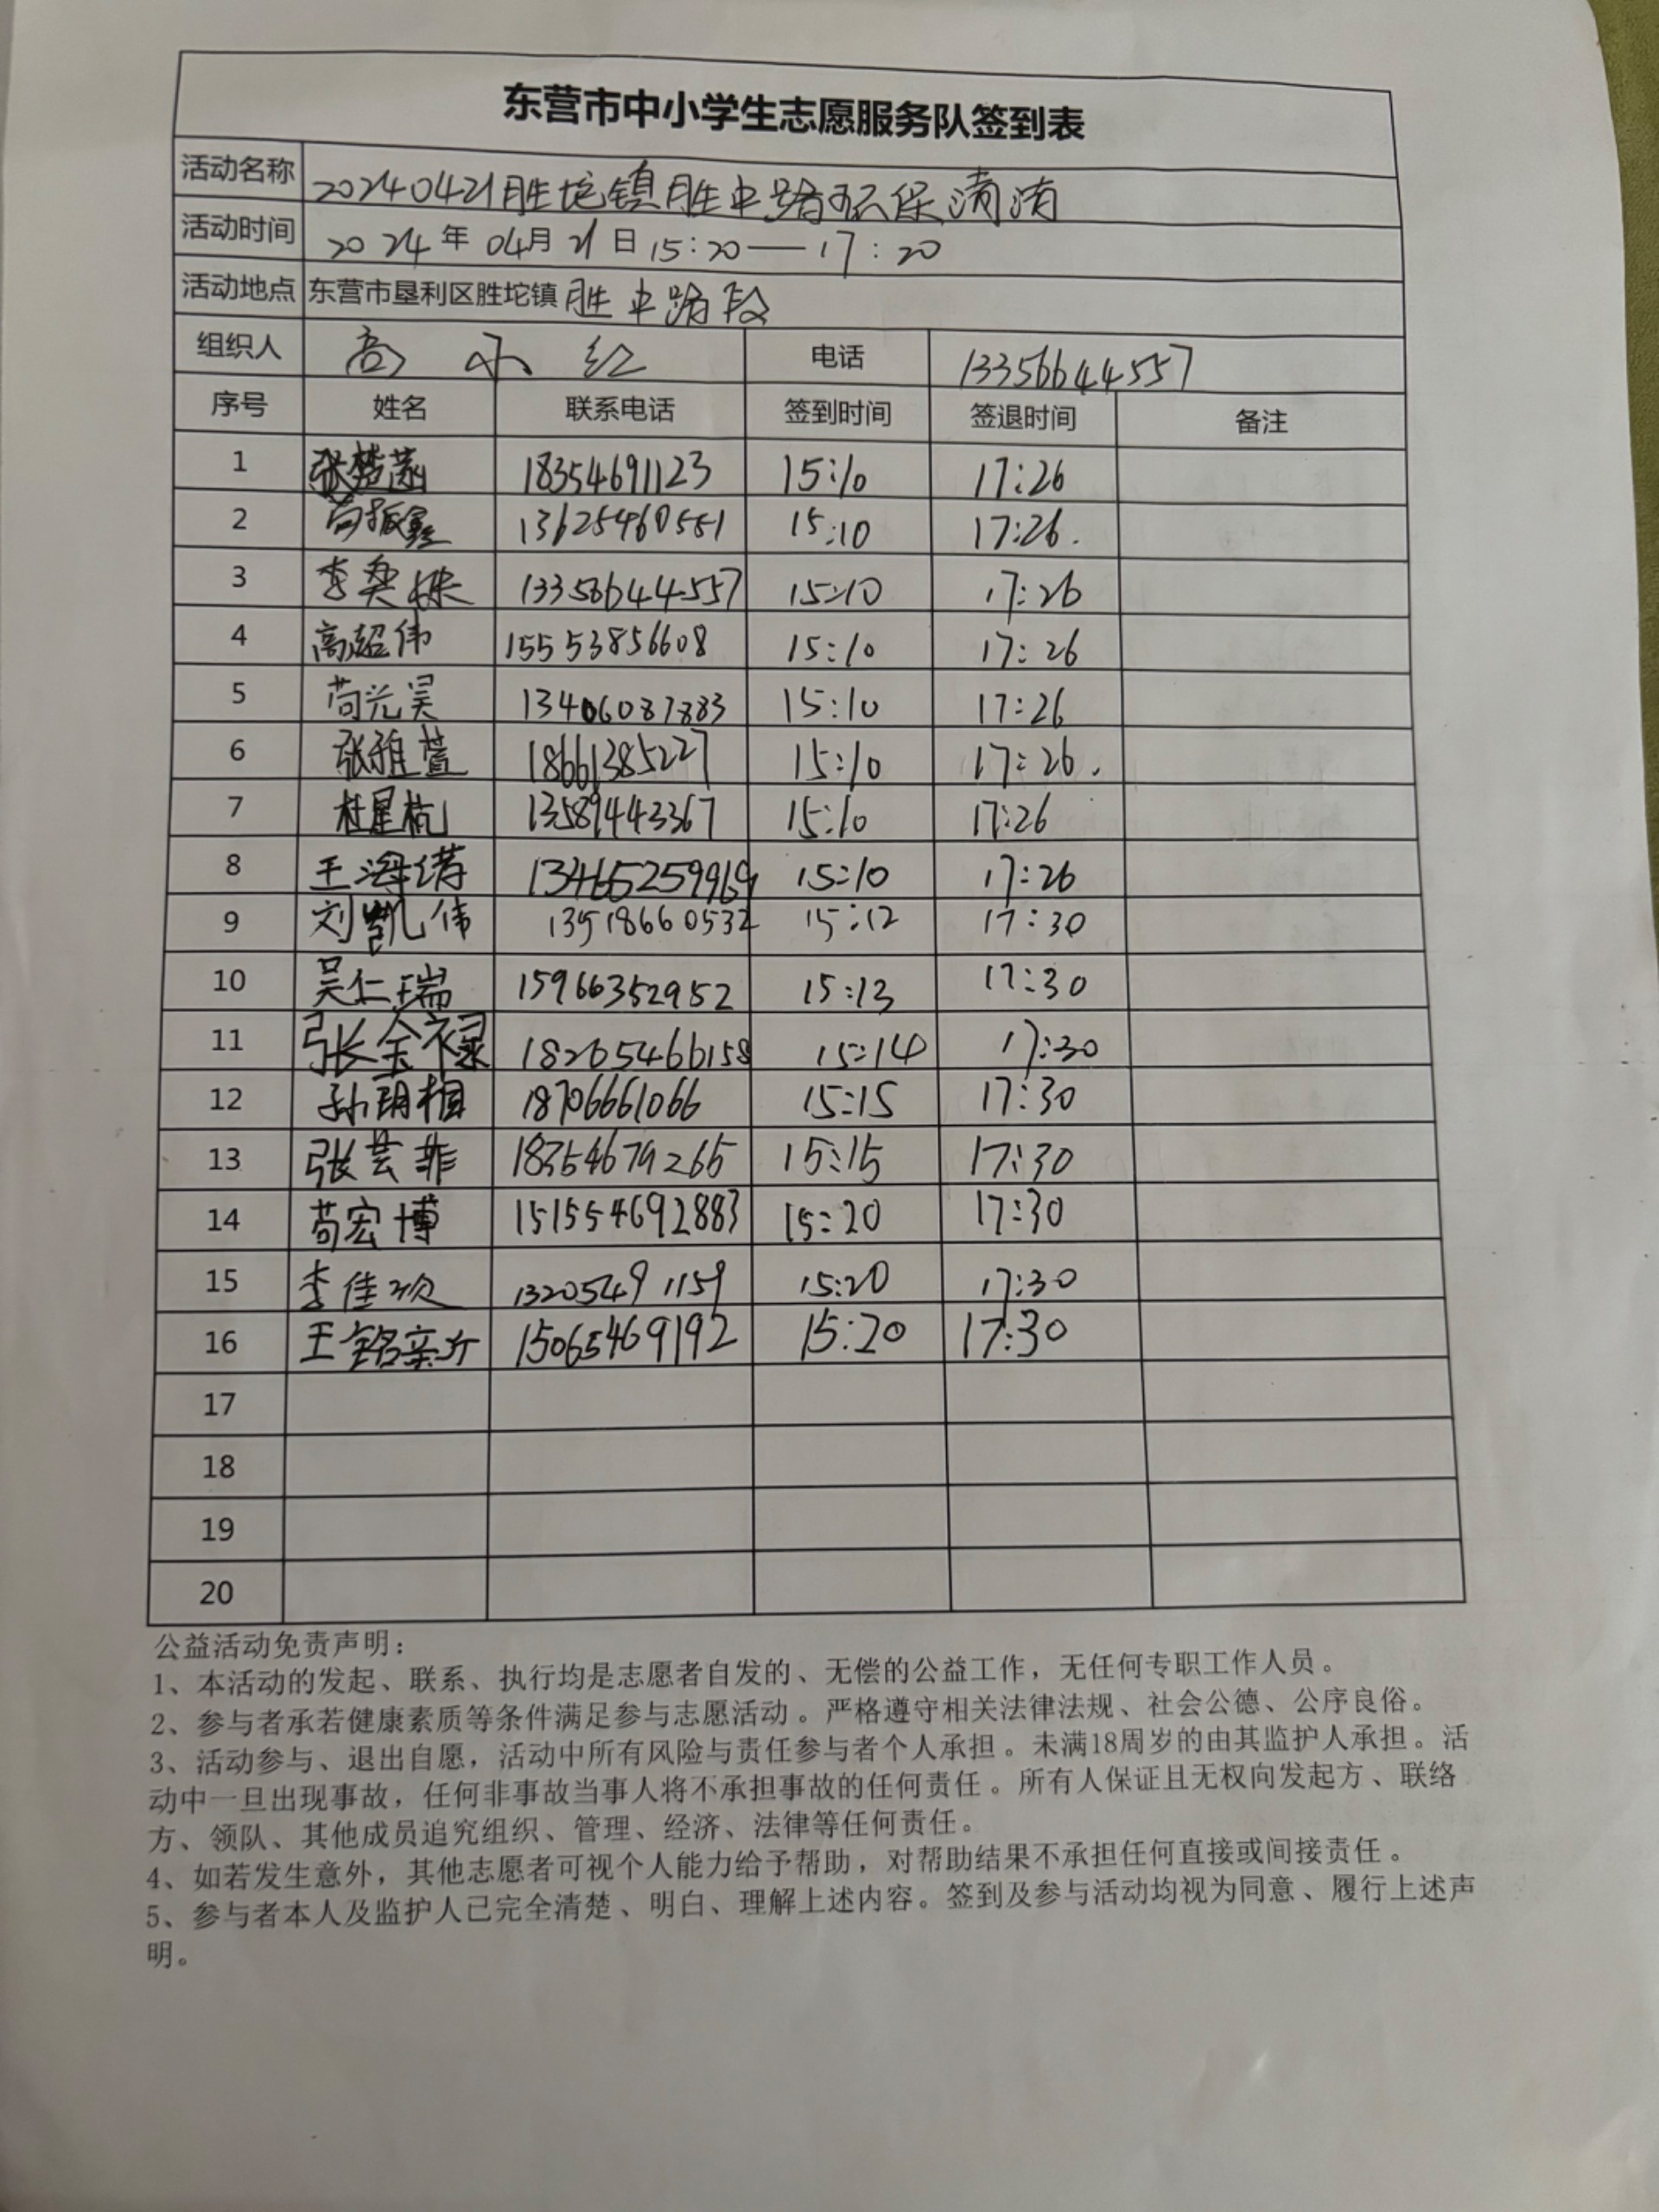 东营市中小学生志愿服务队签到表
活动名称 20240421胜坨镇胜中路环保清洁
活动时间 2024年04月21日15:20—17:20
活动地点 东营市垦利区胜坨镇胜中路段
组织人 高小红 电话 13356644557
序号 姓名 联系电话 签到时间 签退时间 备注
1 张楚菡 18354691123 15:10 17:26
2 苟振鑫 13625460551 15:10 17:26.
3 李奕 13356644557 15:10 17:26
4 高超伟 15553856608 15:10 17:26
5 苟光昊 13406087883 15:10 17:26
6 张雅萱 18661385227 15:10 17:26.
7 杜星杭 13589443367 15:10 17:26
8 王海 15:10 17:26
9 刘凯伟 15:12 17:30
10 吴仁瑞 15966352952 15:13 17:30
11 张金禄 18265466158 15:14 17:30
12 孙玥相 18706661066 15:15 17:30
13 张芸菲 18354679265 15:15 17:30
14 苟宏博 151554692883 15:20 17:30
15 李佳欣 13205491159 15:20 17:30
16 王铭 15065469192 15:20 17:30
17
18
19
20
公益活动免责声明：
1、本活动的发起、联系、执行均是志愿者自发的、无偿的公益工作，无任何专职工作人员。
2、参与者承若健康素质等条件满足参与志愿活动。严格遵守相关法律法规、社会公德、公序良俗。
3、活动参与、退出自愿，活动中所有风险与责任参与者个人承担。未满18周岁的由其监护人承担。活
动中一旦出现事故，任何非事故当事人将不承担事故的任何责任。所有人保证且无权向发起方、联络
方、领队、其他成员追究组织、管理、经济、法律等任何责任。
4、如若发生意外，其他志愿者可视个人能力给予帮助，对帮助结果不承担任何直接或间接责任。
5、参与者本人及监护人已完全清楚、明白、理解上述内容。签到及参与活动均视为同意、履行上述声
明。